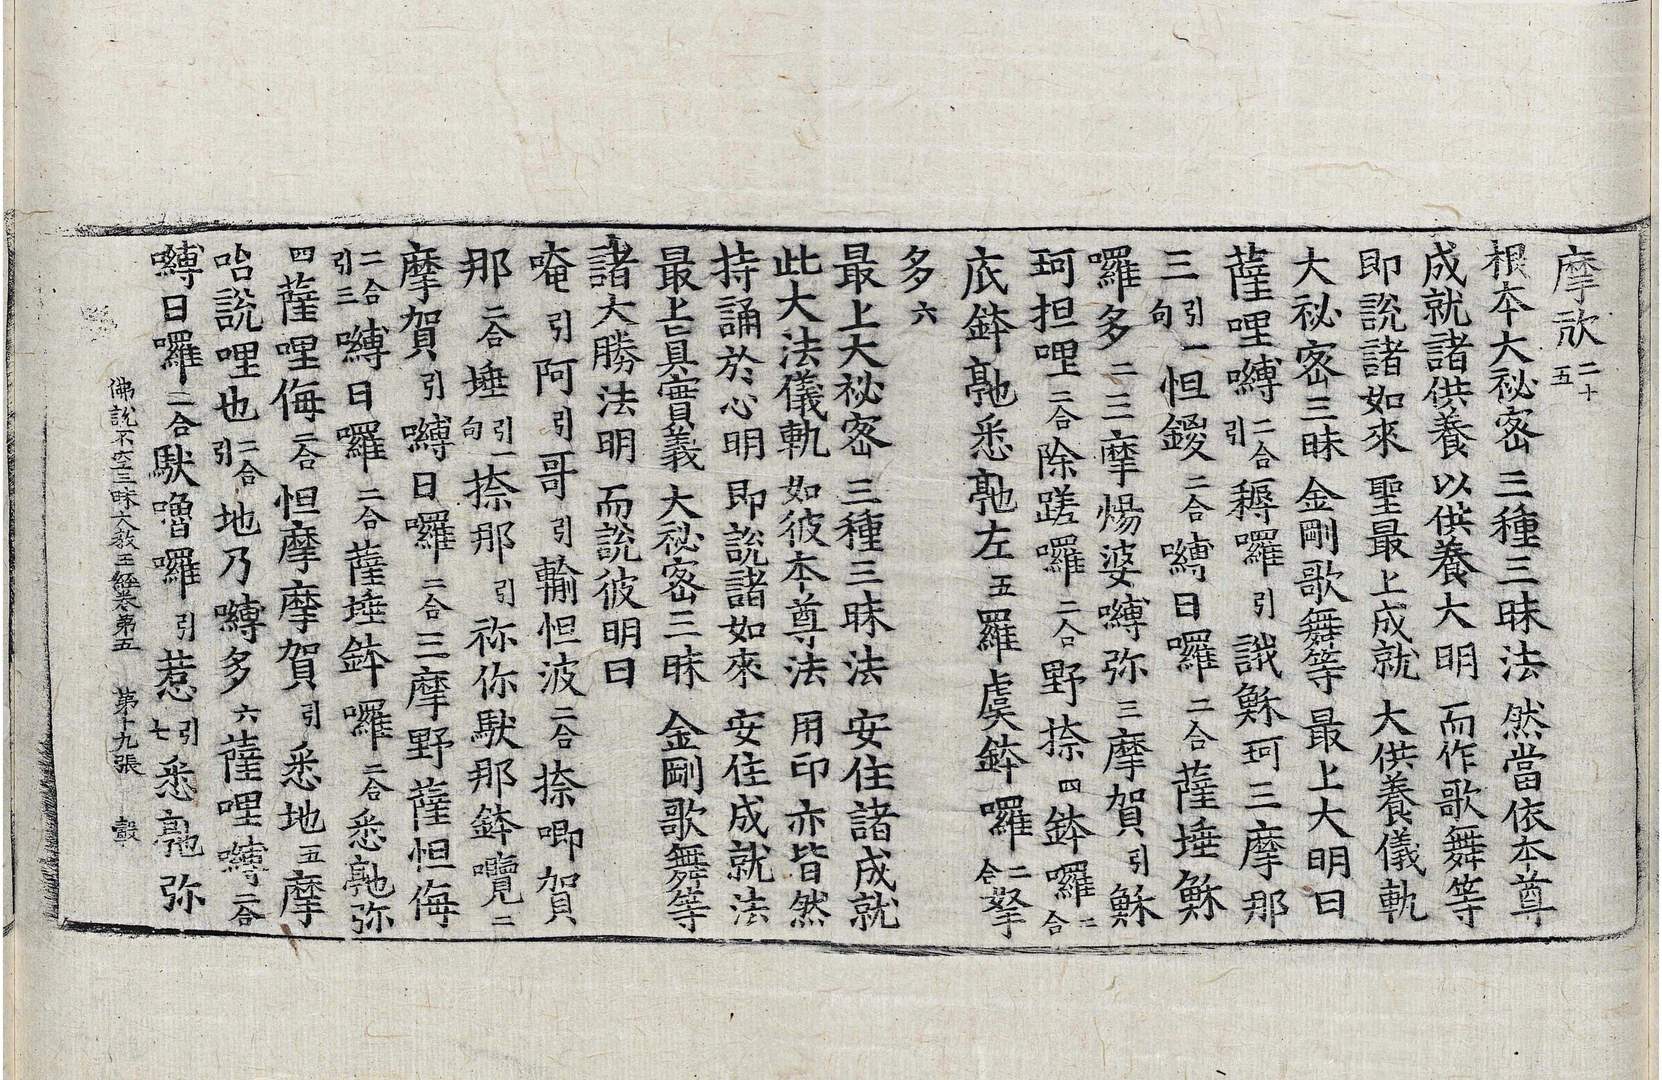 摩欣二十五
根本大祕密 三種三昧法 然當依本尊
成就諸供養 以供養大明 而作歌舞等
即說諸如來 聖最上成就 大供養儀軌
大祕密三昧 金剛歌舞等 最上大明曰
薩哩嚩二合引耨囉引誐穌珂三摩那
三引一句怛鑁二合嚩日囉二合薩埵穌
囉多二三摩煬婆嚩弥三摩賀引穌
珂担哩二合除蹉囉二合野捺四鉢囉二合
底鉢䩭悉䩭左五羅虞鉢囉二合拏
多六
最上大祕密 三種三昧法 安住諸成就
此大法儀軌 如彼本尊法 用印亦皆然
持誦於心明 即說諸如來 安住成就法
最上眞實義 大祕密三昧 金剛歌舞等
諸大勝法明 而說彼明曰
唵引阿引哥引輸怛波二合捺唧賀
那二合埵引一句捺那引祢你馱那鉢囕二
摩賀引嚩日囉二合三摩野薩怛侮
二合引三嚩日囉二合薩埵鉢囉二合悉䩭弥
四薩哩侮二合怛摩摩賀引悉地五摩
呬說哩也二合引地乃嚩多六薩哩嚩二合
嚩日囉二合馱嚕囉引惹引七悉䩭弥
佛說不空三昧大教王經卷第五 第十九張 轂